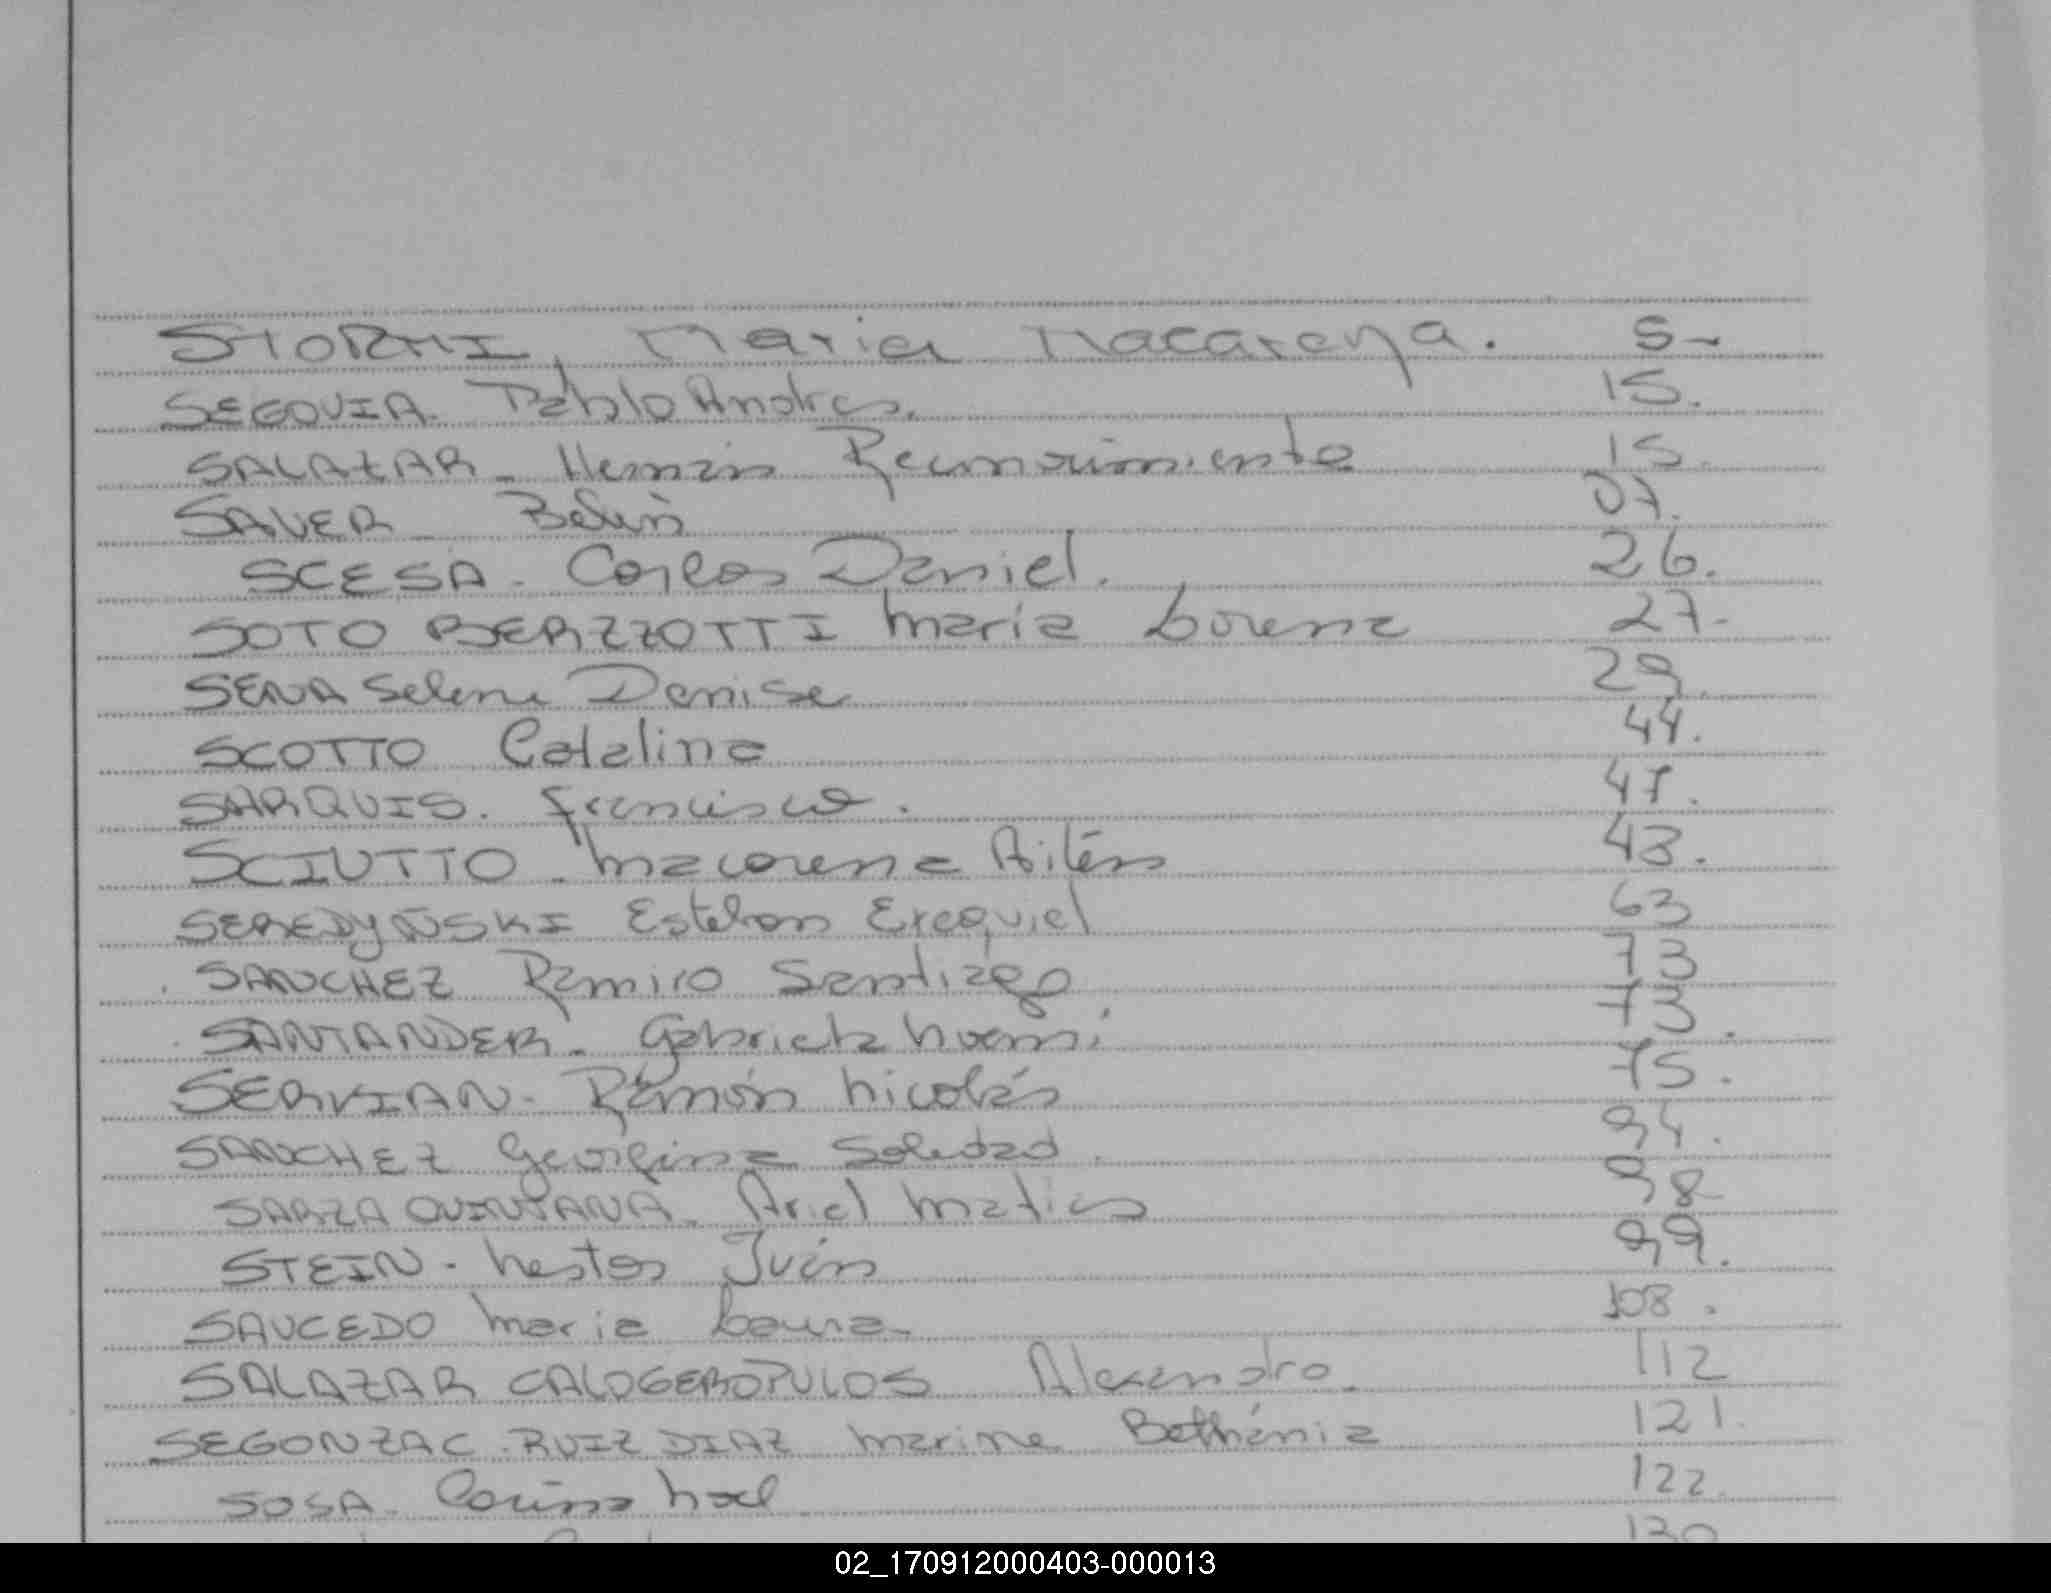 STORNI, Maria Macarena. 5-
SEGOVIA. Pablo Andres. 15.
SALAZAR - Hernán Reconocimiento 15.
SAUER - Belén 07.
SCESA - Carlos Daniel. 26.
SOTO BERZZOTTI Maria Lorena 27.
SENA Selene Denise 29.
SCOTTO Catalina 44.
SARQUIS. Francisco. 47.
SCIUTTO - Macarena Ailén 43.
SEREDYŃSKI Esteban Ezequiel 63
SANCHEZ Ramiro Santiago 73
SANTANDER - Gabriela Noemi 73.
SERVIAN - Ramón Nicolás 75.
SANCHEZ Georgina Soledad. 94.
SARZA QUINTANA - Ariel Matias 98
STEIN - Nestor Iván 99.
SAUCEDO Maria Laura - 108.
SALAZAR CALOGEROPULOS Alexandro - 112
SEGONZAC - RUIZ DIAZ Marina Bethánia 121.
SOSA - Corina Noel 122.
130
02_170912000403-000013